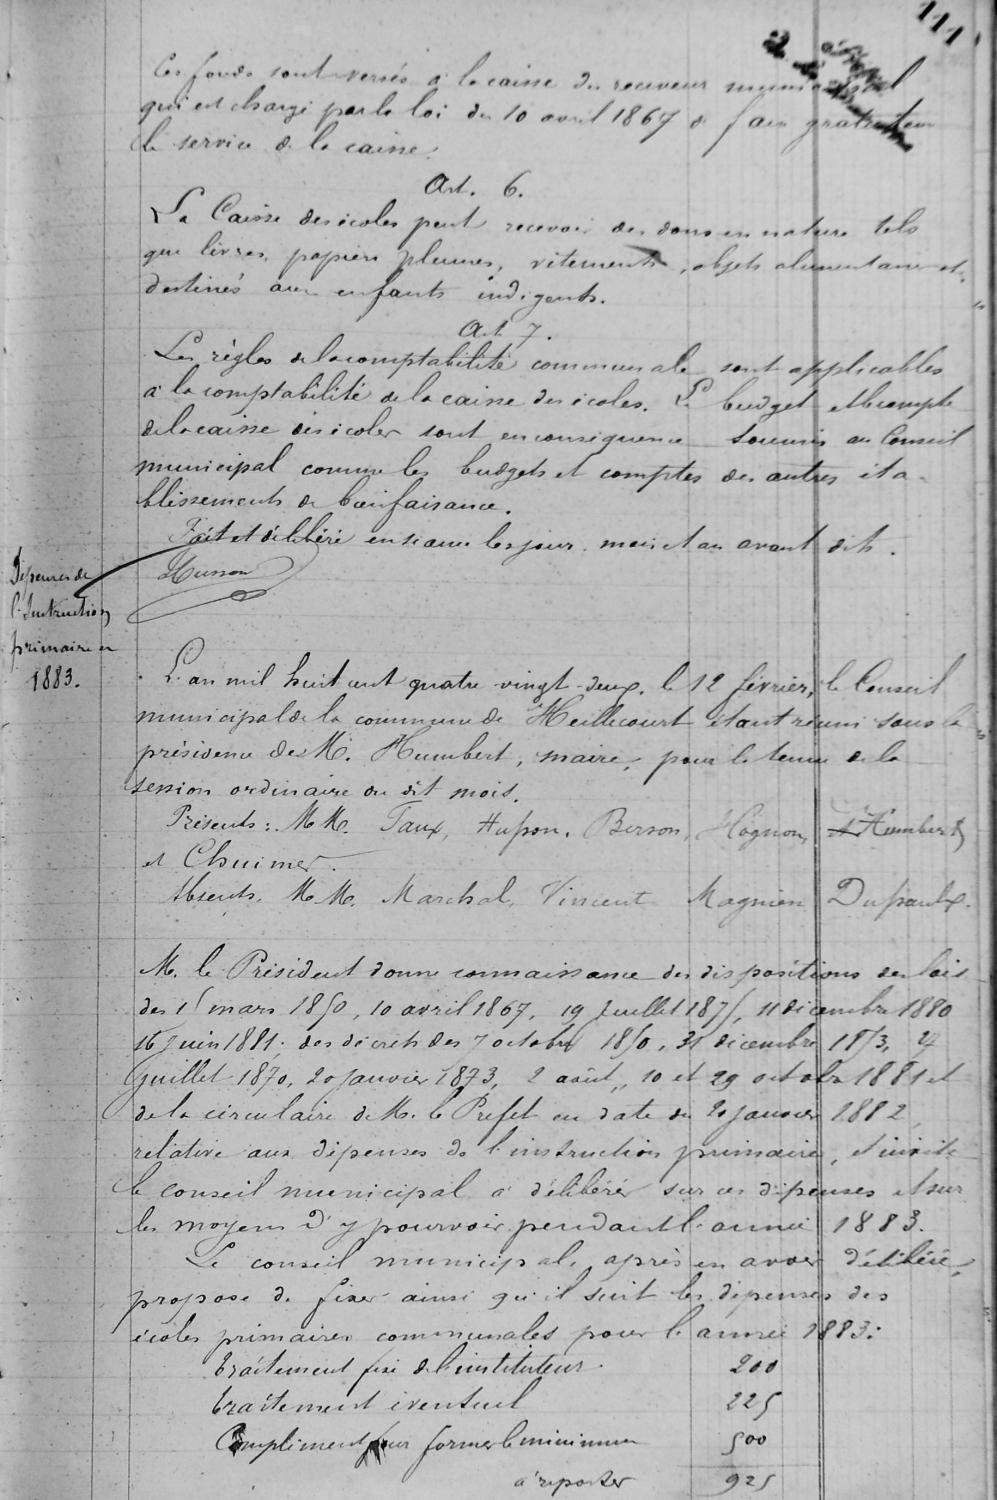 111
Ces fonds sont versés à la caisse du receveur municipal
qui est chargé par la loi du 10 avril 1867 de faire gratuitement
le service de la caisse.
Art. 6.
La Caisse des écoles peut recevoir des dons en nature tels
que livres, papiers plumes, vêtements, objets alimentaires etc
destinés aux enfants indigents.
Art 7.
Les règles de la comptabilité communale sont applicables
à la comptabilité de la caisse des écoles. Le budget et le compte
de la caisse des écoles sont en conséquence soumis au Conseil
municipal comme les budgets et comptes des autres éta-
blissements de bienfaisance.
Fait et délibéré en séance les jour, mois et an avant dits.
Husson
Dépenses de
l'Instruction
primaire en
1883.
L'an mil huit cent quatre vingt-deux, le 12 février, le Conseil
municipal de la commune de Heillecourt étant réuni sous la
présidence de M. Humbert, maire, pour la tenue de la
session ordinaire du dit mois.
Présents: MM. Taux, Husson, Berson, Hognon, et Humbert
et Chuimer.
Absents. MM. Marchal, Vincent Magnien Dupaulx.
M. le Président donne connaissance des dispositions des lois
des 15 mars 1850, 10 avril 1867, 19 Juillet 1875, 11 décembre 1880
16 Juin 1881; des décrets des 7 octobre 1850, 31 décembre 1853, 24
Juillet 1870, 20 Janvier 1873, 2 août, 10 et 29 octobre 1881 et
de la circulaire de M. le Préfet en date du 20 Janvier 1882,
relative aux dépenses de l'instruction primaire, et invite
le conseil municipal à délibérer sur ces dépenses et sur
les moyens d'y pourvoir pendant l'année 1883.
Le conseil municipal, après en avoir délibéré,
propose de fixer ainsi qu'il suit les dépenses des
écoles primaires communales pour l'année 1883:
traitement fixe de l'instituteur. 200
traitement éventuel 225
Complément pour former le minimum 500
à reporter 925